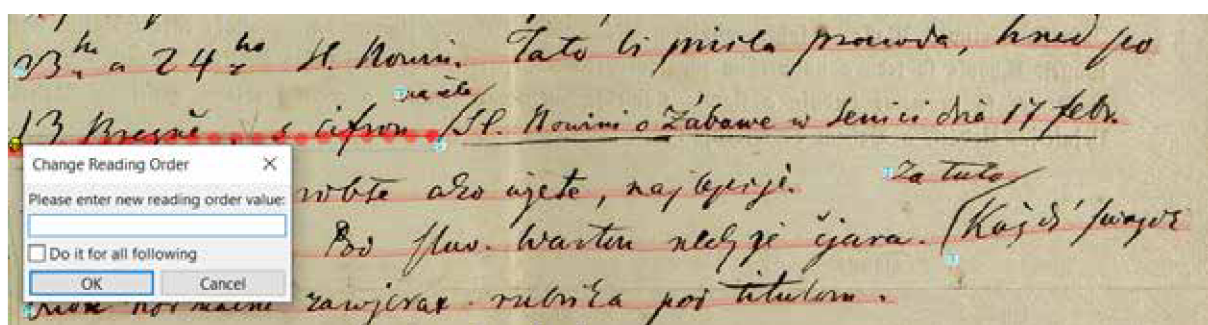 23ho a 24ho Sl. Nowin. Tato li prišla prawda, hned po
na čele
13 Brezně, s cifrou / Sl. Nowini o Zábawe w Senici dňa 17 febr.
Change Reading Order
Please enter new reading order value:
Do it for all following
OK Cancel
robte ako vjete, najlepije. Za tuto
Bo sluw. nech je čjara. (Každí
normalne zawjerax. rubrika pod titulom.